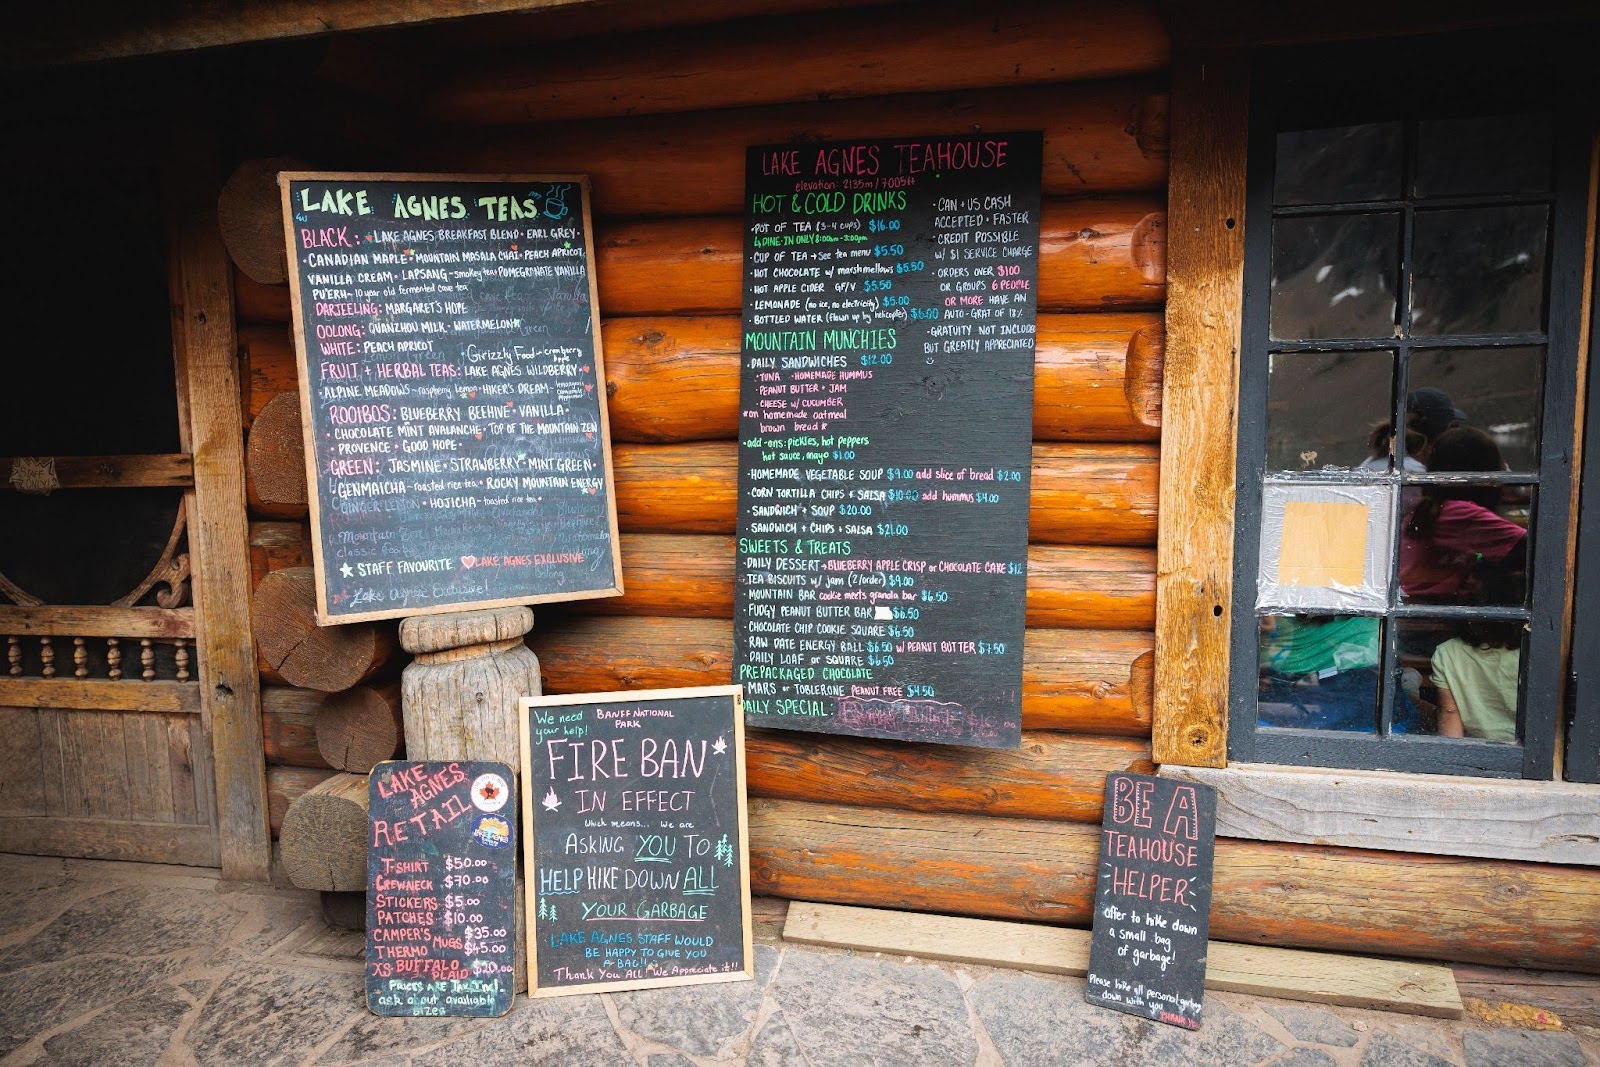 LAKE AGNES TEAS
BLACK: LAKE AGNES BREAKFAST BLEND • EARL GREY •
• CANADIAN MAPLE • MOUNTAIN MASALA CHAI • PEACH APRICOT
VANILLA CREAM • LAPSANG - smokey tea • POMEGRANATE VANILLA
PU'ERH - 10 year old fermented cave tea
DARJEELING: MARGARET'S HOPE
OOLONG: QUANZHOU MILK • WATERMELON
WHITE: PEACH APRICOT
• Grizzly Food - cranberry apple
FRUIT + HERBAL TEAS: LAKE AGNES WILDBERRY •
• ALPINE MEADOWS - raspberry lemon • HIKER'S DREAM -
ROOIBOS: BLUEBERRY BEEHIVE • VANILLA •
• CHOCOLATE MINT AVALANCHE • TOP OF THE MOUNTAIN ZEN
• PROVENCE • GOOD HOPE •
GREEN: JASMINE • STRAWBERRY • MINT GREEN •
GENMAICHA - roasted rice tea • ROCKY MOUNTAIN ENERGY
GINGER LEMON • HOJICHA - toasted rice tea •
STAFF FAVOURITE LAKE AGNES EXCLUSIVE
Lake Agnes Exclusive!
LAKE AGNES TEAHOUSE
elevation: 2135m / 7005ft
HOT & COLD DRINKS
• POT OF TEA (3-4 cups) $16.00
↳ DINE-IN ONLY 8:00am - 3:00pm
• CUP OF TEA → See tea menu $5.50
• HOT CHOCOLATE w/ marshmellows $5.50
• HOT APPLE CIDER GF/V $5.50
• LEMONADE (no ice, no electricity) $5.00
• BOTTLED WATER (flown up by helicopter) $6.00
• CAN + US CASH
ACCEPTED + FASTER
• CREDIT POSSIBLE
W/ $1 SERVICE CHARGE
• ORDERS OVER $100
OR GROUPS 6 PEOPLE
OR MORE HAVE AN
AUTO-GRAT OF 18%
• GRATUITY NOT INCLUDED
BUT GREATLY APPRECIATED
MOUNTAIN MUNCHIES
• DAILY SANDWICHES $12.00
• TUNA • HOMEMADE HUMMUS
• PEANUT BUTTER + JAM
• CHEESE W/ CUCUMBER
*on homemade oatmeal
brown bread*
• add-ons: pickles, hot peppers
hot sauce, mayo $1.00
• HOMEMADE VEGETABLE SOUP $9.00 add slice of bread $2.00
• CORN TORTILLA CHIPS + SALSA $10.00 add hummus $4.00
• SANDWICH + SOUP $20.00
• SANDWICH + CHIPS + SALSA $21.00
SWEETS & TREATS
• DAILY DESSERT → BLUEBERRY APPLE CRISP or CHOCOLATE CAKE $12
TEA BISCUITS w/ jam (2/order) $9.00
• MOUNTAIN BAR cookie meets granola bar $6.50
• FUDGY PEANUT BUTTER BAR $6.50
• CHOCOLATE CHIP COOKIE SQUARE $6.50
• RAW DATE ENERGY BALL $6.50 w/ PEANUT BUTTER $7.50
• DAILY LOAF or SQUARE $6.50
PREPACKAGED CHOCOLATE
• MARS or TOBLERONE PEANUT FREE $4.50
DAILY SPECIAL:
STAFF ONLY
LAKE
AGNES
RETAIL
T-SHIRT $50.00
CREWNECK $70.00
STICKERS $5.00
PATCHES $10.00
CAMPER'S MUGS $35.00
THERMO $45.00
XS BUFFALO PLAID $20.00
PRICES ARE TAX INCL.
ask about available
sizes
We need
your help!
BANFF NATIONAL
PARK
FIRE BAN
IN EFFECT
Which means... We are
ASKING YOU TO
HELP HIKE DOWN ALL
YOUR GARBAGE
LAKE AGNES STAFF WOULD
BE HAPPY TO GIVE YOU
A BAG!!
Thank You All! We Appreciate it!!
BE A
TEAHOUSE
HELPER
offer to hike down
a small bag
of garbage!
Please hike all personal garbage
down with you